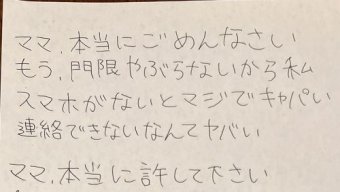 ママ、本当にごめんなさい
もう、門限やぶらないから私
スマホがないとマジでキャパい
連絡できないなんてヤバい
ママ、本当に許して下さい